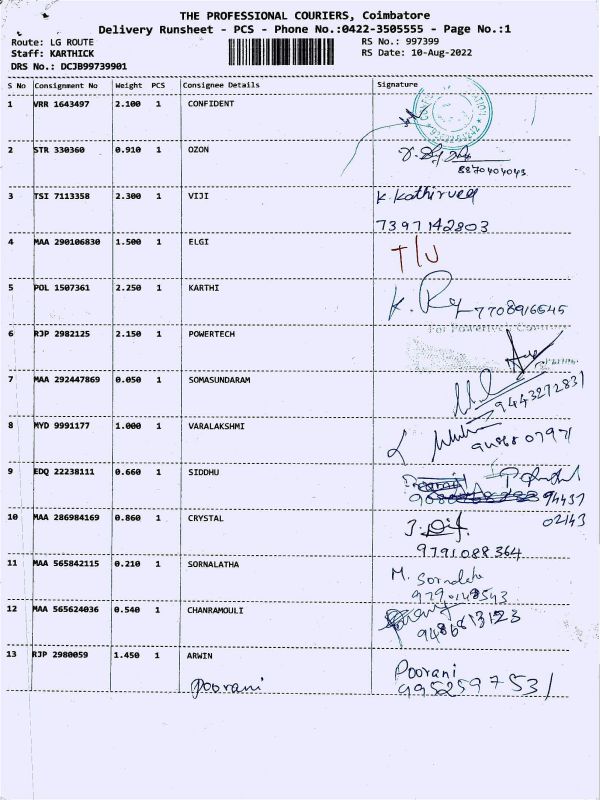 THE PROFESSIONAL COURIERS, Coimbatore
Delivery Runsheet - PCS - Phone No.:0422-3505555 - Page No.:1
Route: LG ROUTE
RS No.: 997399
Staff: KARTHICK
RS Date: 10-Aug-2022
DRS No.: DCJB99739901
S No Consignment No Weight PCS Consignee Details Signature
1 VRR 1643497 2.100 1 CONFIDENT
2 STR 330360 0.910 1 OZON
8870404043
3 TSI 7113358 2.300 1 VIJI K. Kathirvel
7397142803
4 MAA 290106830 1.500 1 ELGI T/U
5 POL 1507361 2.250 1 KARTHI
7708916545
6 RJP 2982125 2.150 1 POWERTECH
7 MAA 292447869 0.050 1 SOMASUNDARAM
9443272831
8 MYD 9991177 1.000 1 VARALAKSHMI
9 EDQ 22238111 0.660 1 SIDDHU
94437
02143
10 MAA 286984169 0.860 1 CRYSTAL
9791088364
11 MAA 565842115 0.210 1 SORNALATHA M. Sornalatha
12 MAA 565624036 0.540 1 CHANRAMOULI
9486813123
13 RJP 2980059 1.450 1 ARWIN Poorani
Poorani 9952597531